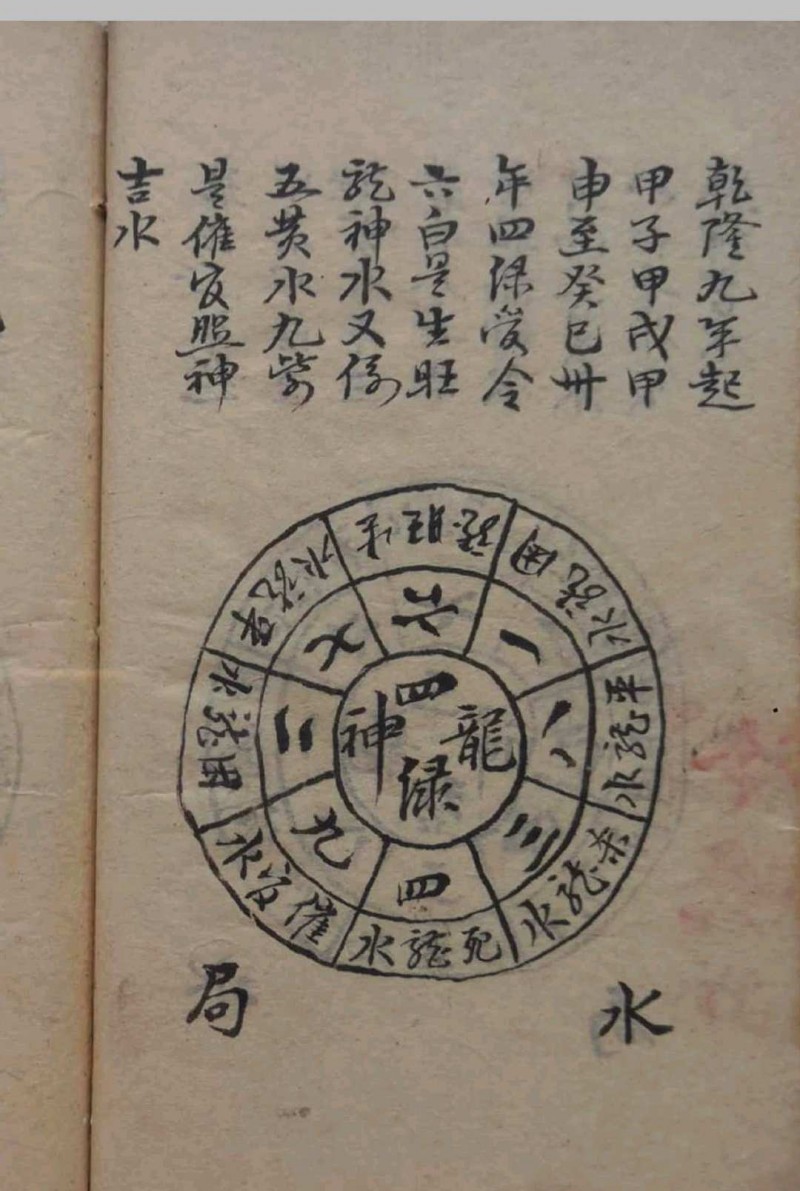 乾隆九年起
甲子甲戌甲
申至癸巳卅
年四绿受令
六白是生旺
龍神水又係
五黄水九紫
是催官照神
吉水
四绿
龍神
六
一
八
三
四
九
二
七
生旺龍
囚龍水
平龍水
杀龍水
死龍水
催官水
囚龍水
龍水
水局